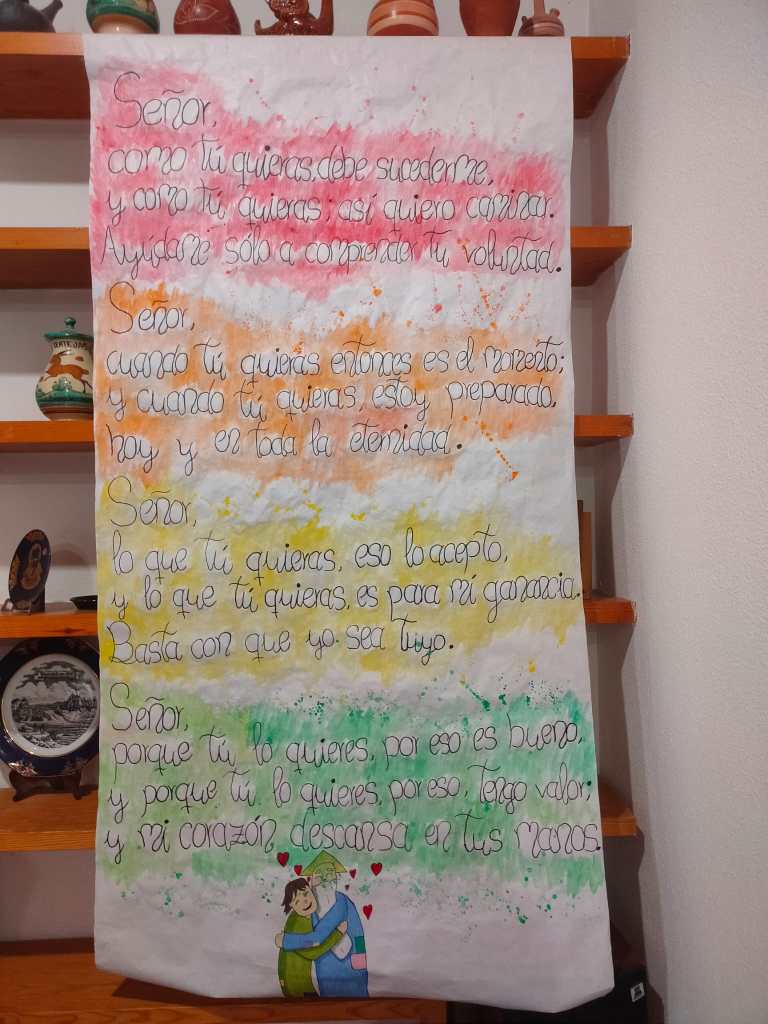 Señor,
como tú quieras, debe sucederme,
y como tú, quieras; así quiero caminar.
Ayúdame sólo a comprender tu voluntad.
Señor,
cuando tú quieras entonces es el momento;
y cuando tú, quieras, estoy preparado,
hoy y en toda la eternidad.
Señor,
lo que tú quieras, eso lo acepto,
y lo que tú quieras, es para mi ganancia.
Basta con que yo sea tuyo.
Señor,
porque tú lo quieres, por eso es bueno,
y porque tú lo quieres, por eso, tengo valor;
y mi corazón descansa en tus manos.